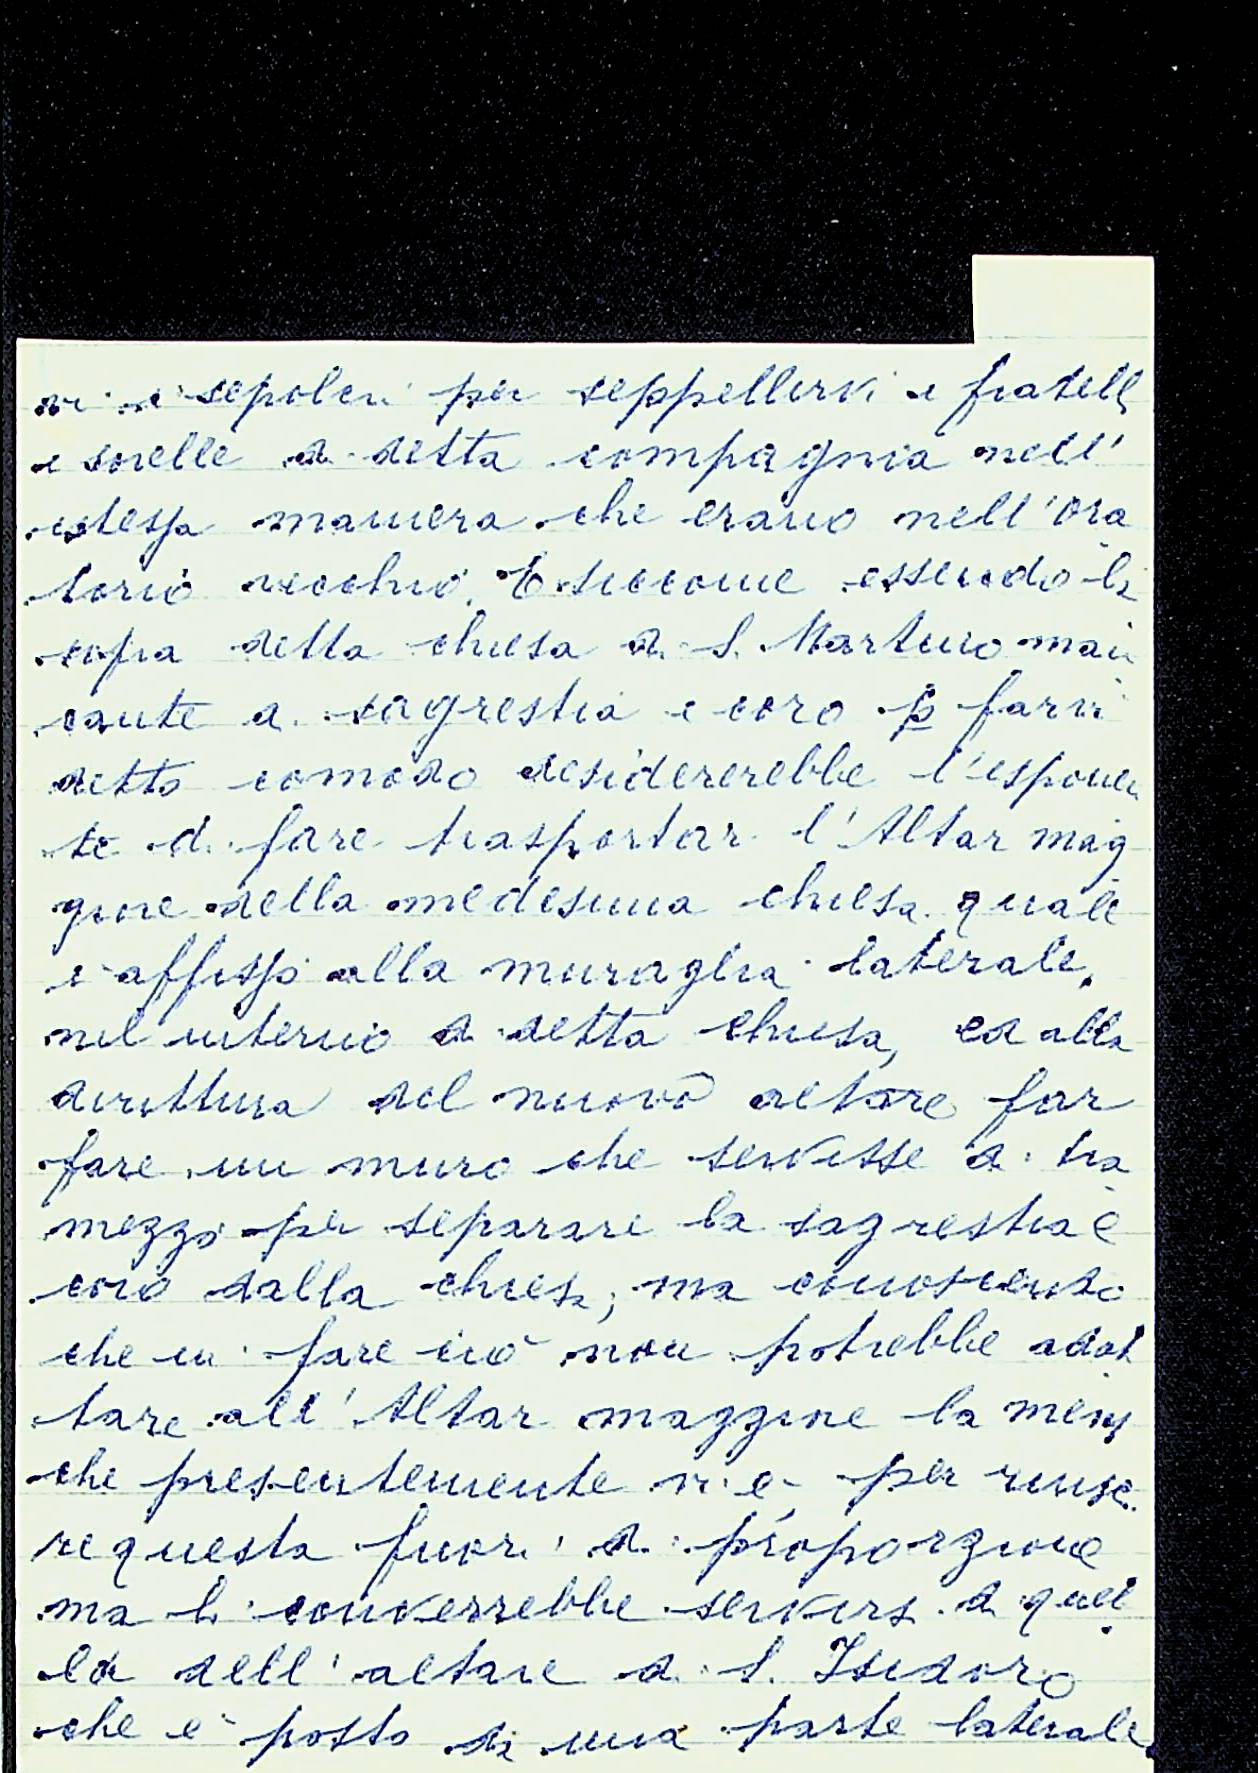 vi i sepolcri per seppellirvi i fratelli
e sorelle di detta compagnia nell'
istessa maniera che erano nell'Ora
torio vecchio. E siccome essendo la
sopra detta chiesa di S. Martino man
cante di sagrestia e coro p farvi
detto comodo desidererebbe l'esponen
te di fare trasportar l'Altar mag
giore della medesima chiesa quale
è affisso alla muraglia laterale,
nel interno di detta chiesa, ed alla
dirittura del nuovo altare far
fare un muro che servisse di tra
mezzo per separare la sagrestia e
coro dalla chiesa; ma conoscendo
che in fare ciò non potrebbe adat
tare all'Altar maggiore la mensa
che presentemente vi è per riusci
re questa fuori di proporzione
ma li converrebbe servirsi di quel
la dell'altare di S. Isidoro
che è posto di una parte laterale